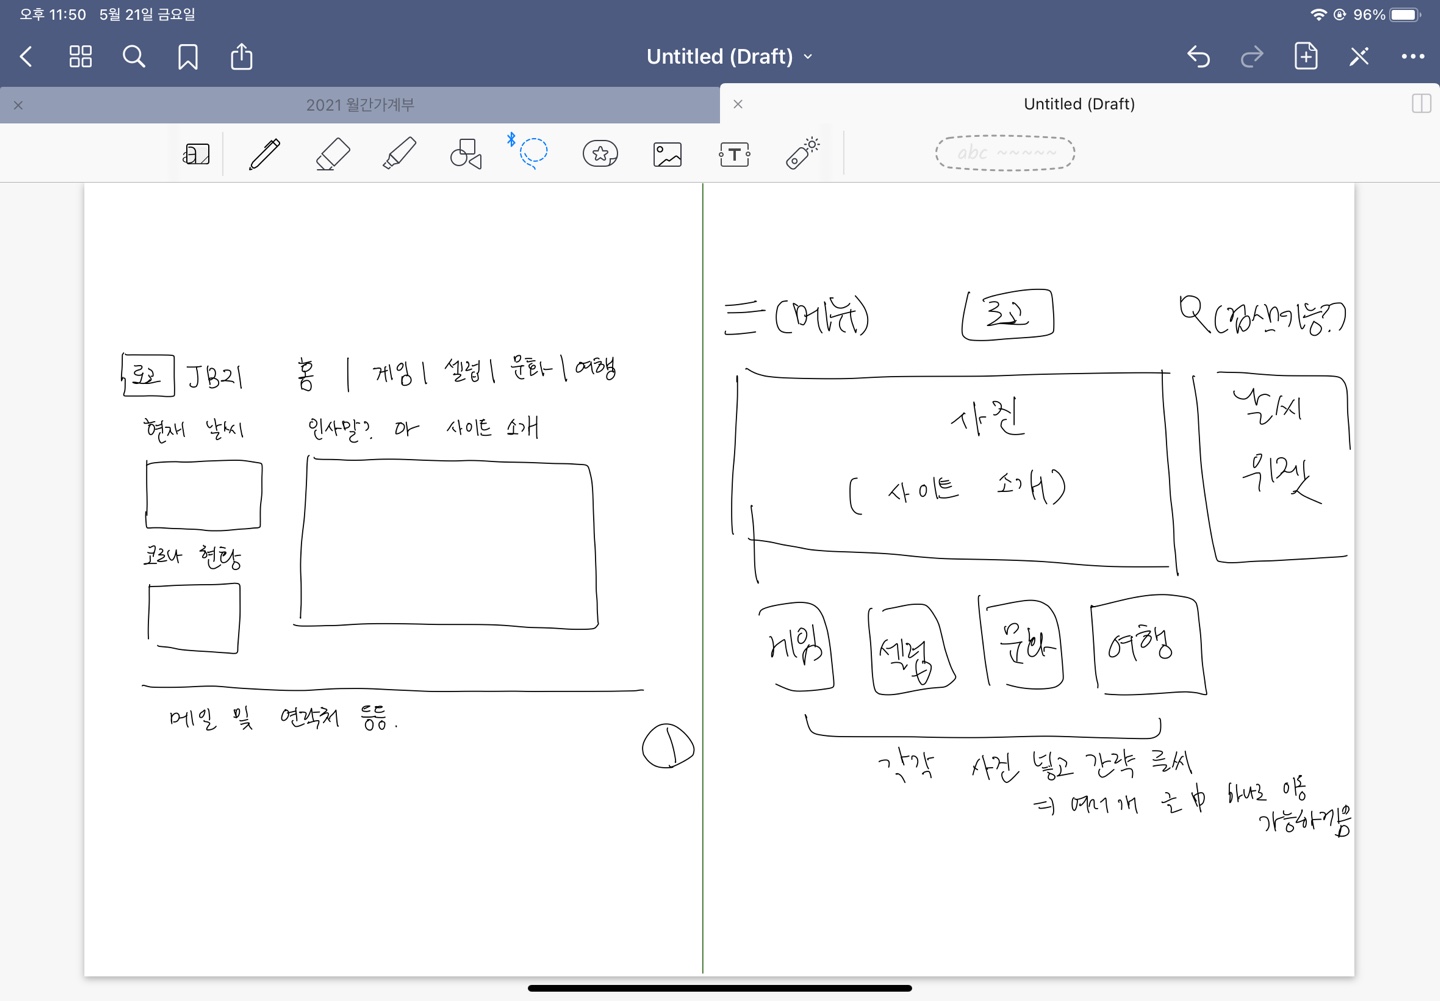 오후 11:50 5월 21일 금요일 96%
Untitled (Draft)
2021 월간가계부
Untitled (Draft)
abc
로고 JB21 홈 | 게임 | 셀럽 | 문화 | 여행
현재 날씨 인사말? 아 사이트 소개
코로나 현황
메일 및 연락처 등등.
1
(메뉴) 로고 (검색기능?)
사진
( 사이트 소개)
날씨
위젯
게임 셀럽 문화 여행
각각 사진 넣고 간략 글씨
⇒ 여러개 글 中 하나로 이동
가능하게끔